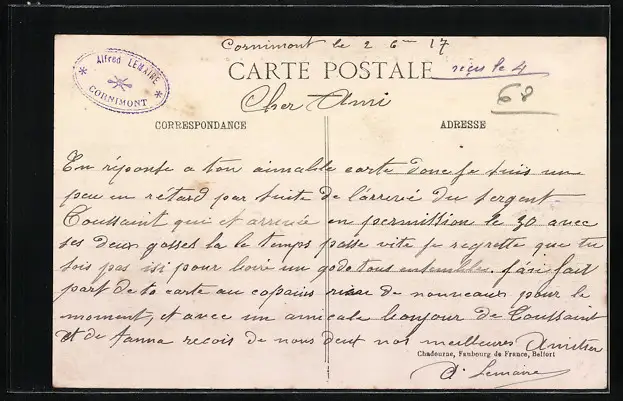 Cornimont le 2 6 17
Alfred LEMAIRE
CORNIMONT
CARTE POSTALE
reçus le 4
68
Cher Ami
CORRESPONDANCE
ADRESSE
En réponse a ton aimable carte donc je suis un
peu en rétard par suite de l'arrivé du sergent
Toussaint qui et arrivée en permission le 30 avec
ses deux gosses la le temps passe vite je regrette que tu
sois pas isi pour boire un godo tous ensembles. j'ai fait
part de ta carte au copains rien de nouveaux pour le
moment, et avec un amicale bonjour de Toussaint
et de fanna recois de nous deux nos meilleures Amitier
Chadourne, Faubourg de France, Belfort
A. Lemaire